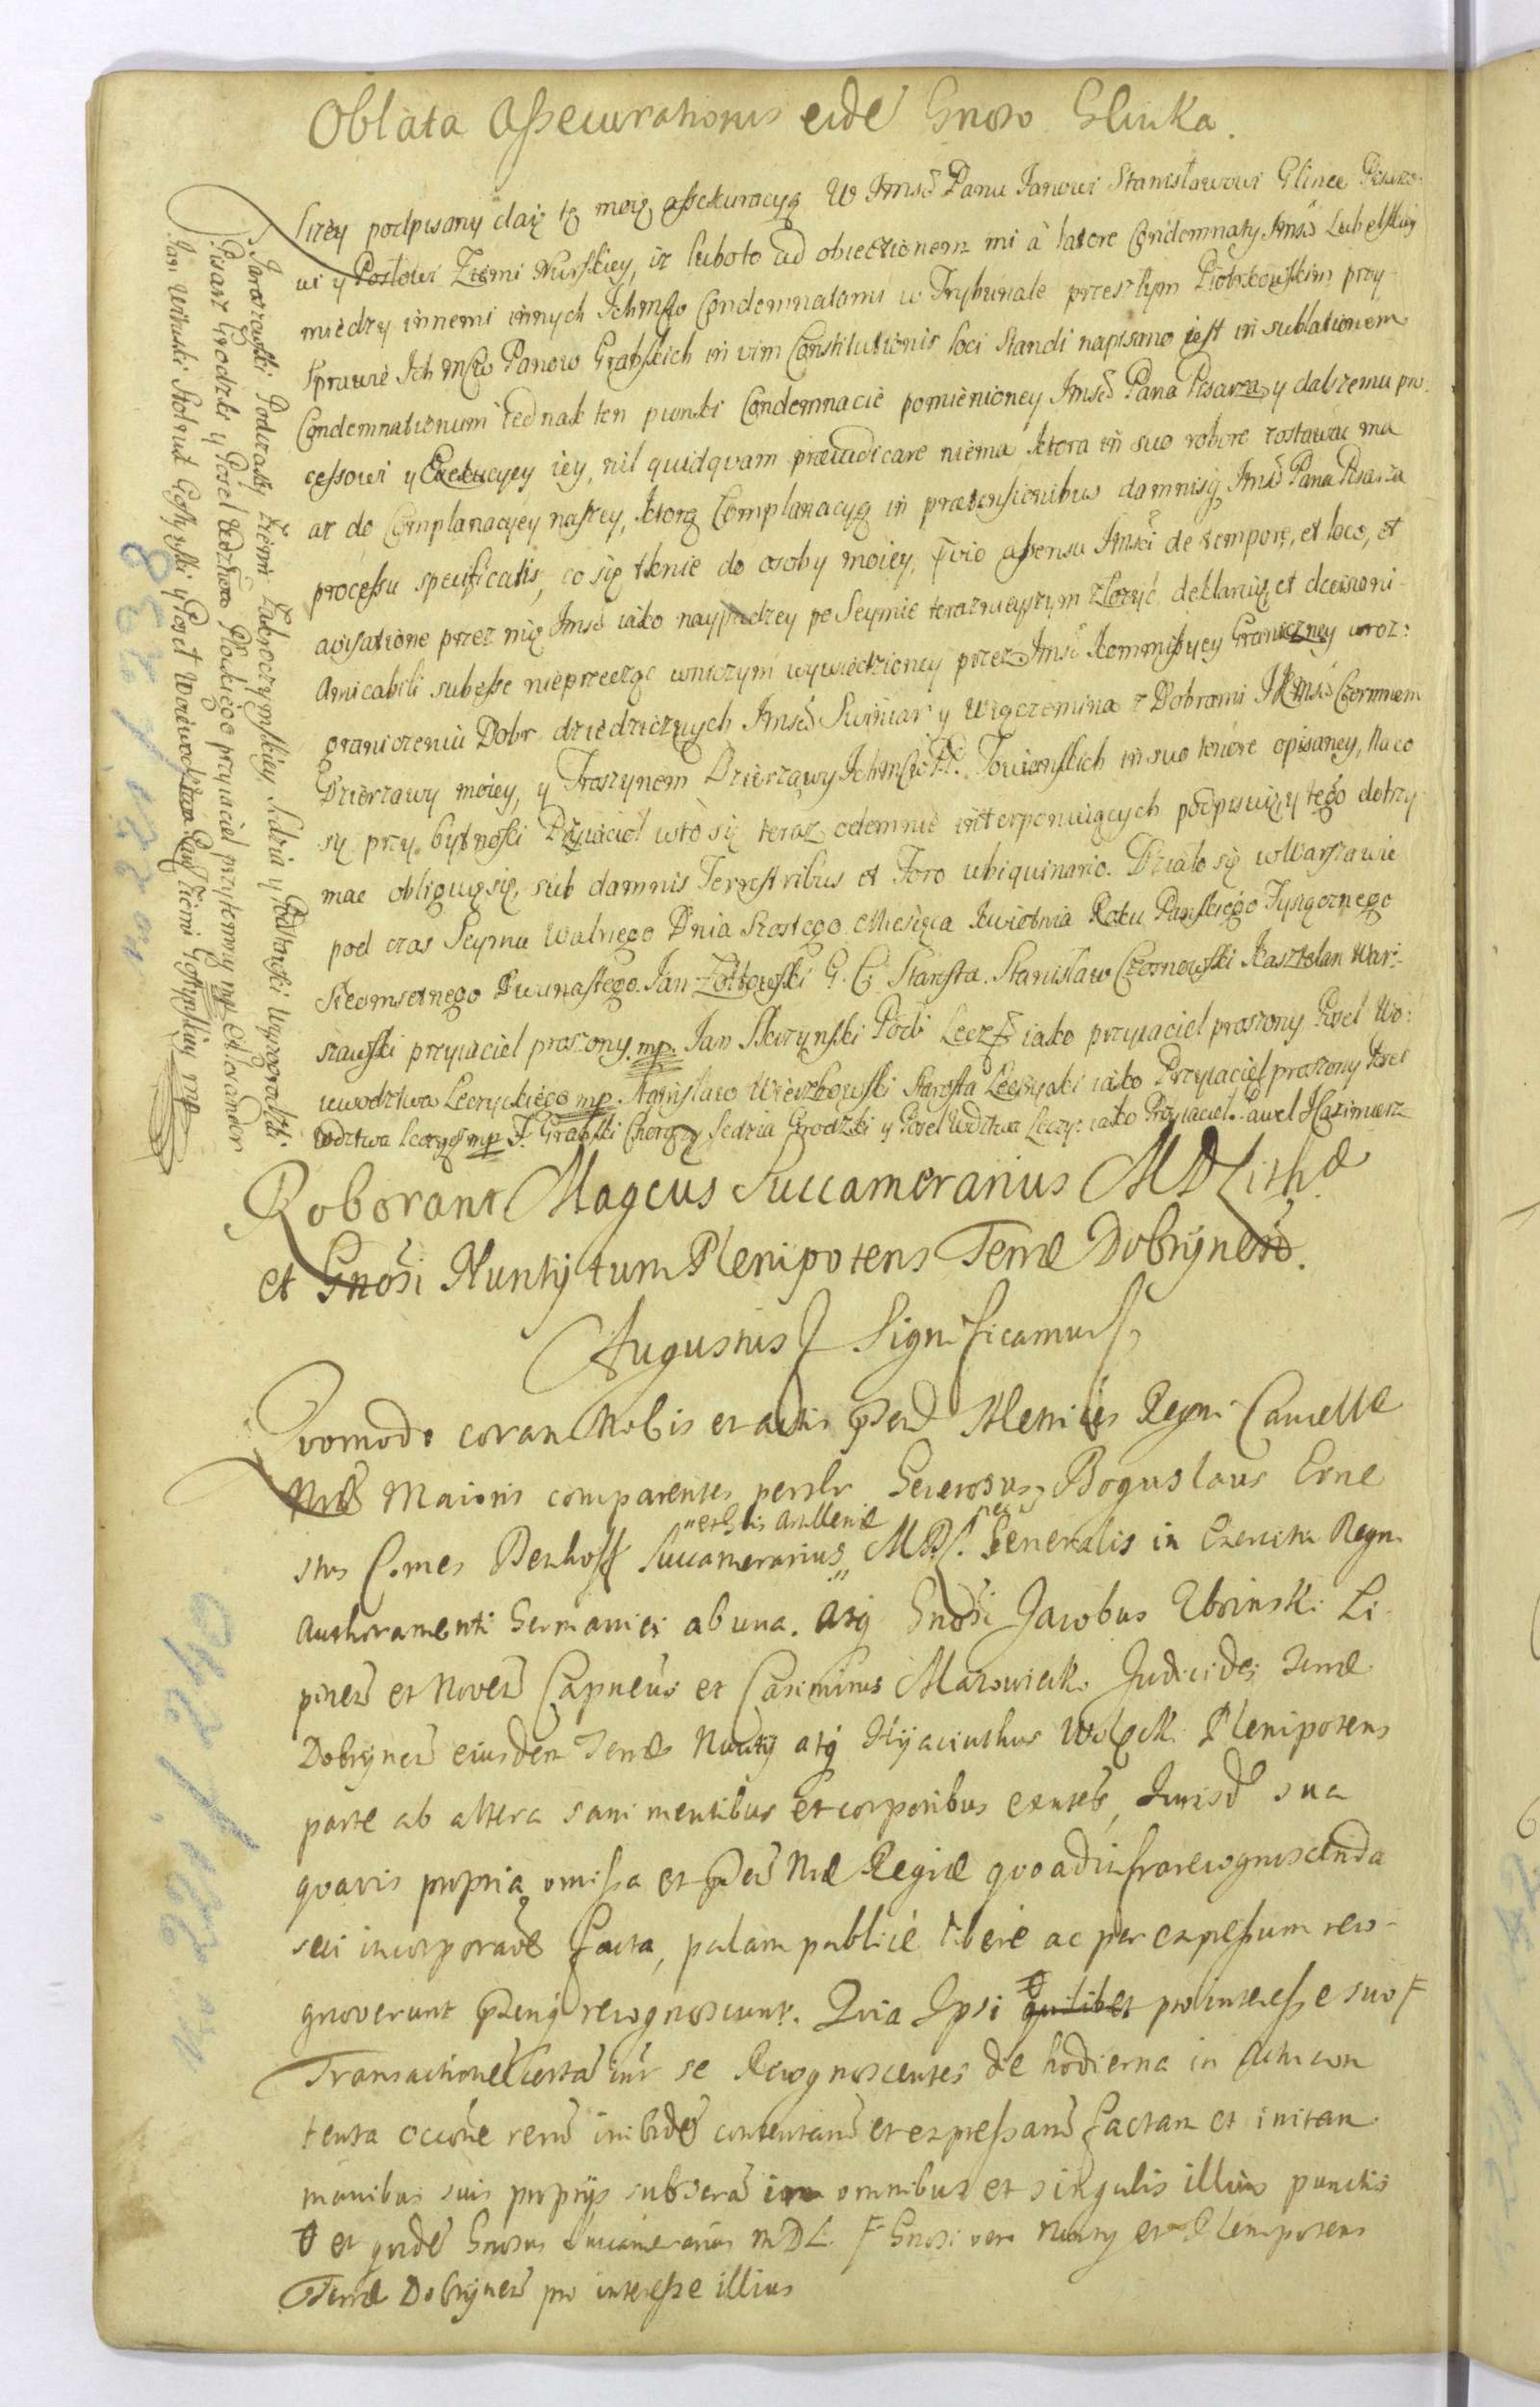 Oblata Assecurationis eidē Gnoso Glinka.
Nizey podpisany daię tę moię assekuracyą W Jmsč Panu Janowi Stanisławowi Glince Pisarzo-
wi y Posłowi Ziemi Nurskiey, iz luboto ad obiectionem mi à latere Condemnaty Jmsč Lubelskiey
miedzy innemi innych Ichmśčo Condemnatami w Trybunale przeszłym Piotrkowskim przy
sprawie Ich mčiw Panow Grabskich in vim Constitutionis loci standi napisano iest in sublationem
Condemnationum iednak ten punkt Condemnacie pomienioney Jmsč Pana Pisarza, y dalszemu pro-
cessowi y Exekucyey iey, nil quidquam præiudicare niema ktora in suo robore zostawac ma
az do Complanacyey naszey, ktorą Complanacyą in prætensionibus damnisq Jmsč Pana Pisarza
processu specificatis, co się tknie do osoby moiey, prvio assensu Jmści de tempore, et loco, et
avisatione przez mię Jmsč iako nayprędzey po Seymie teraznieyszym złozyć deklaruię, et decisioni
Amicabili subesse nieprzecząc wniczym wywiedzioney przez Jmsč Kommissyey Graniczney w roz:
graniczeniu Dobr dziedzicznych Jmsč Swiniar y Wiączemina z Dobrami JKmsč Czermnem
Dzierzawy moiey, y Troszynem Dzierzawy Ichmčiw PP. Towianskich in suo tenore opisaney, Na co
się przy bytnosci Przyiacioł wto się teraz odemnie interponuiących podpisuię y tego dotrzy-
mac obliguię się, sub damnis Terrestribus et Foro ubiquinario. Działo się w Warszawie
pod czas Seymu Walnego Dnia Szostego Miesiąca Kwietnia Roku Panskiego Tysiącznego
Siedmsetnego Dwunastego. Jan Zołtowski G. G. Starosta. Stanisław Czosnowski Kasztelan War:
szawski przyiaciel proszony mp. Jan Skrzynski Podś Łęcz iako przyiaciel proszony Poseł Wo:
iewodztwa Łęczyckiego mp. Stanisław Wierzbowski Starosta Łęczycki iako Przyiaciel proszony Poseł
Wdztwa Łęczy mp F. Grabski Chorązy Sędzia Grodzki y Poseł Wdztwa Łęczy: iako Przyiaciel. Paweł Kazimierz
Jaroszewski Podczaszy Ziemi Zakroczymskiey, Sędzia y Podstarosci Wyszogrodzki.
Pisarz Grodzki y Poseł Wdztwa Płockiego przyiaciel przytomny mp Alexander
Jan Stolnik Gostynski y Poseł Woiewodztwa Ziemi Gostynskiey mp
Roborant Magcus Succamerarius MDLithæ
et Gnosi Nuntij tum Plenipotens Terræ Dobrynensˢ.
Augustus Significamus
Quomodo coram Nobis et actis pˢend Metricis Regni Cancellæ
Nræ Maioris comparentes persłr Generosus Boguslaus Erne
stus Comes Denhoff Succamerarius „ MDL. Generalis in Exercitu Regni
„et Glis Artilleriæ
nec n
Authoramenti Germanici ab una. Atq Gnosi Jacobus Zboinski Li
pinens et Novens Capneus et Casimirus Mazowiecki Judici des Terræ
Dobrynens eiusdem Terræ Nuntij atq Hyacinthus Plenipotens
parte ab altera sani mentibus et corporibus exntes, Jurisd sua
quavis propria omissa et pˢenti Nræ Regiæ quoad infrarecognoscenda
sui incorporaōe facta, palam publicè liberè ac per expressum reco-
gnoverunt pˢentq recognoscunt. Quia Ipsi quilibet pro interesse suo F
Transactionē Certā intr se Recognoscentes de hodierna in Actu con
tenta occōne rerū inibidē contentarū et expressarū factam et initam
manibus suis proprijs subscrā in omnibus et singulis illius punctis
ꝋ et quidē Gnosus Succamerarius MDL F Gnosi vero Nuntij et Plenipotens
Terræ Dobrynens pro interesse illius